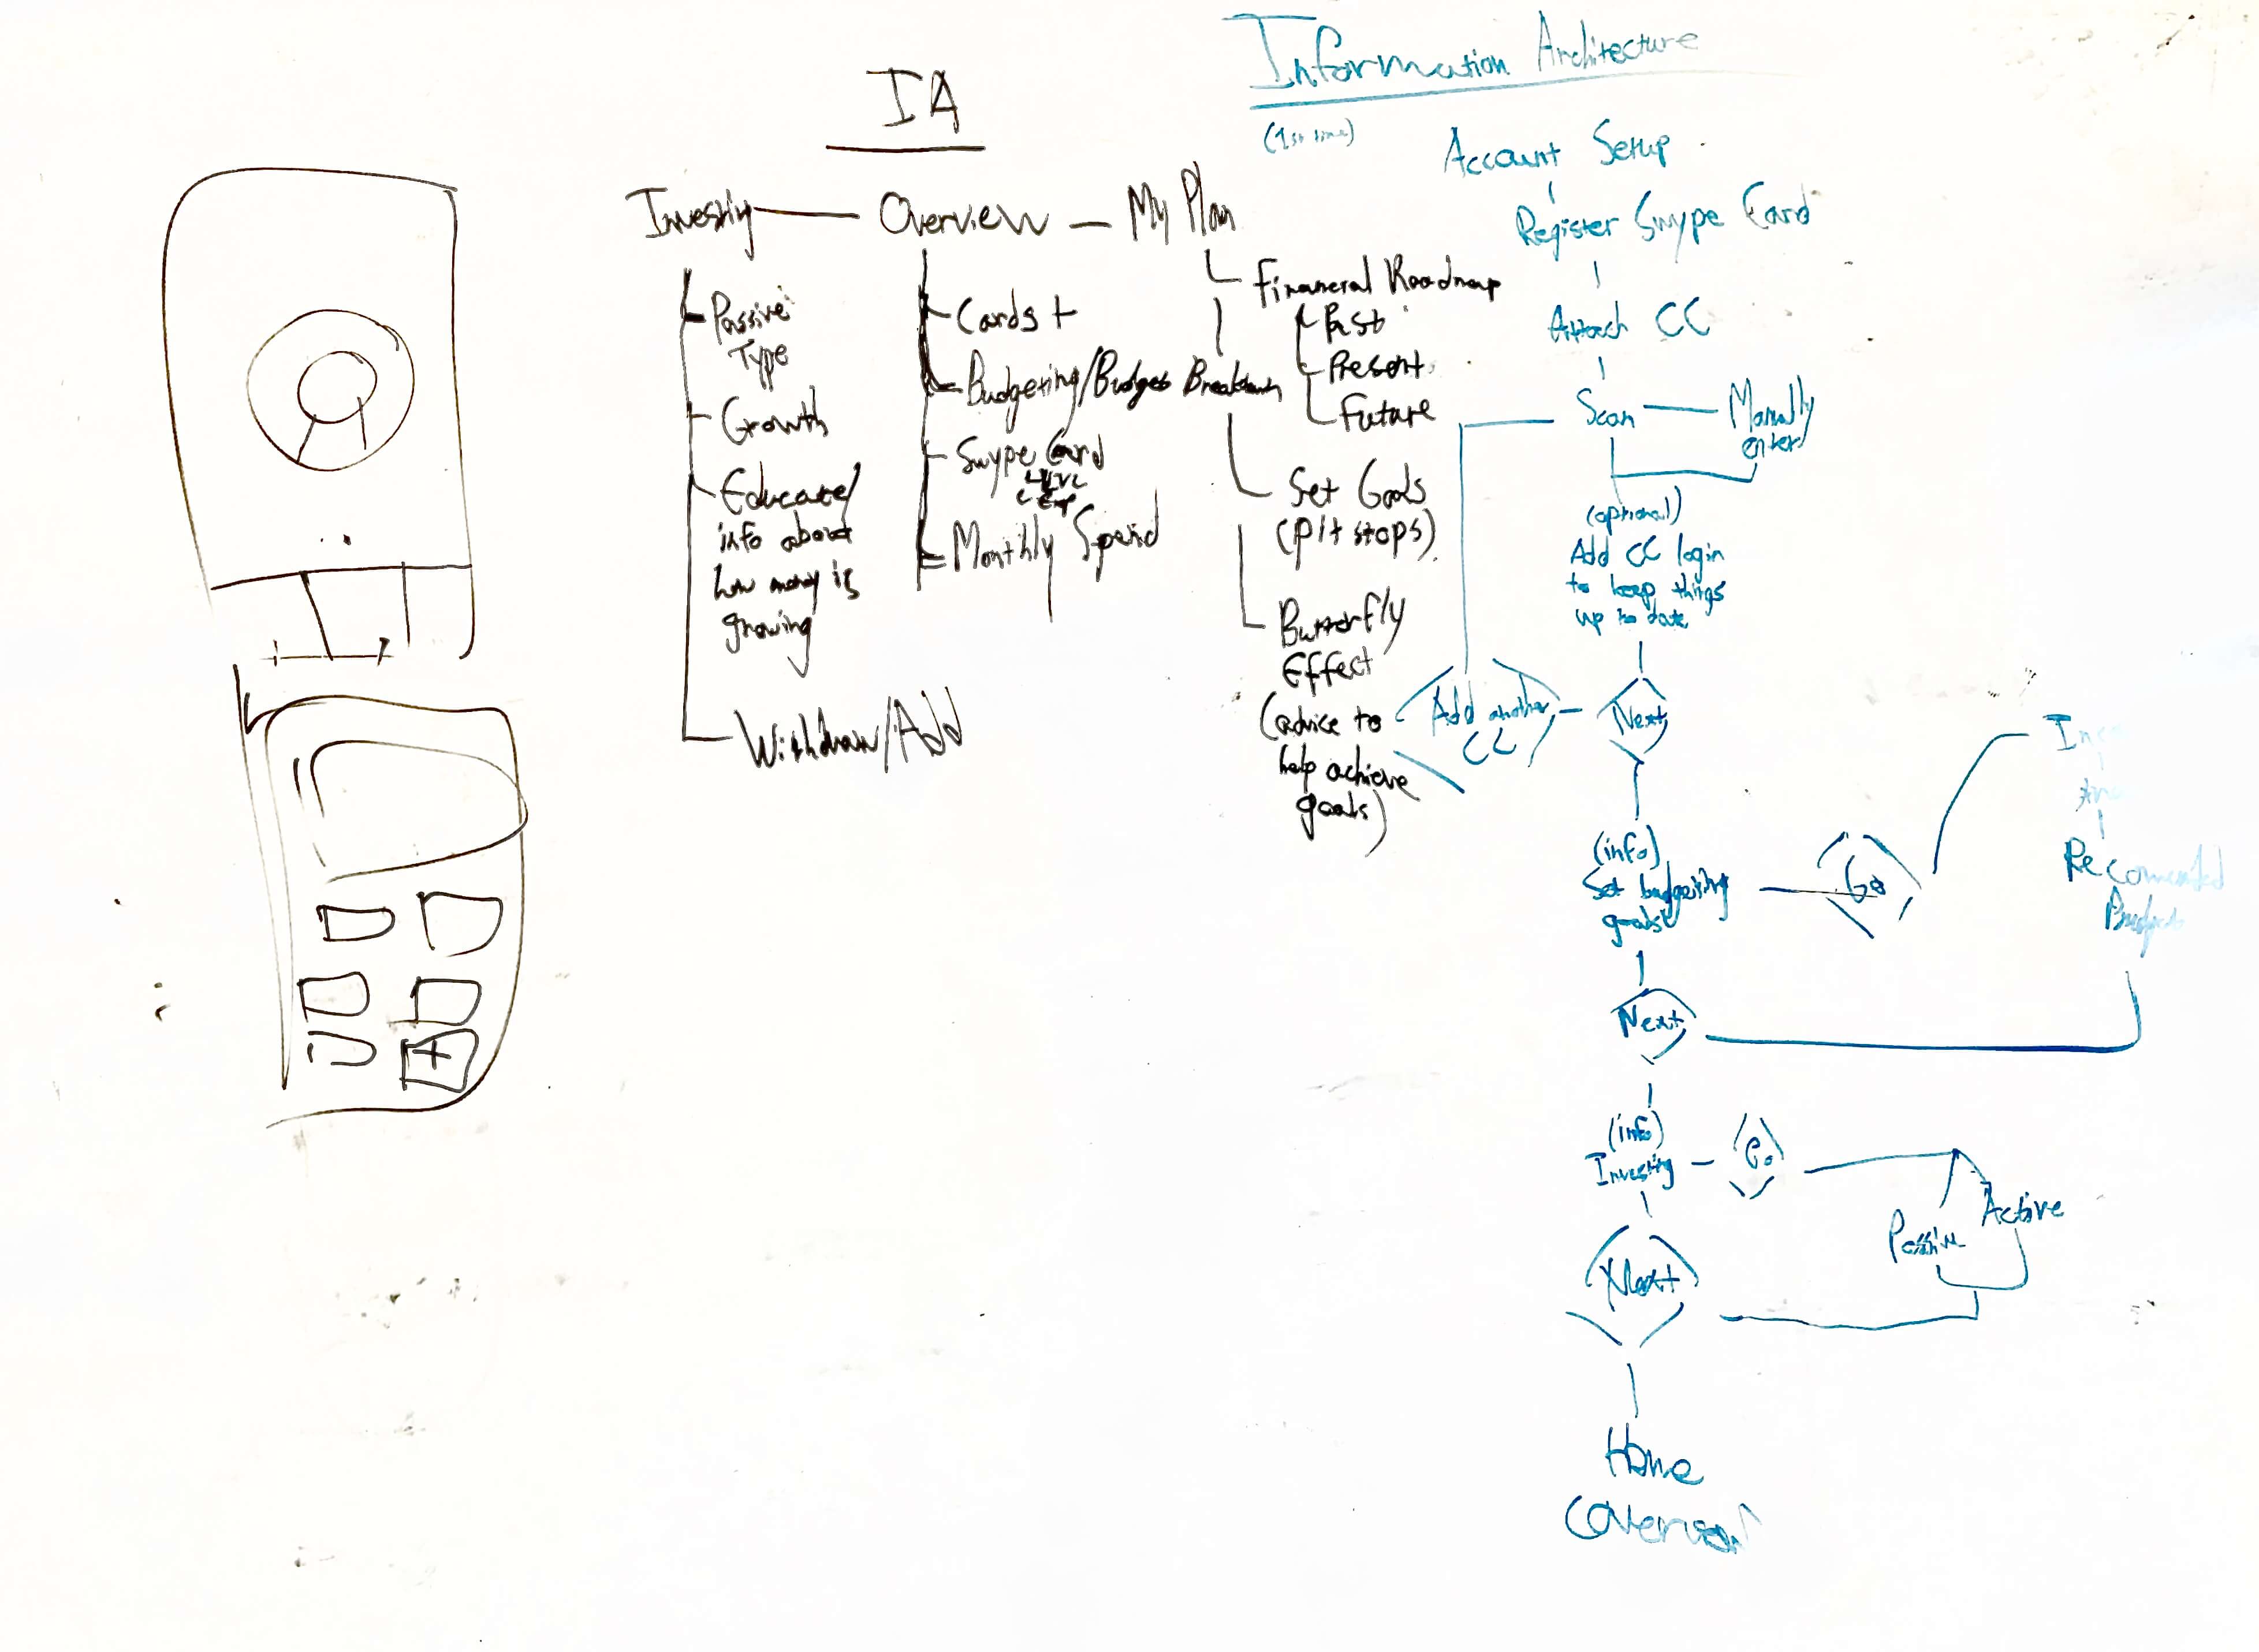 IA
Investing
Overview
My Plan
Passive
Type
Growth
Educate/
info about
how money is
growing
Withdraw/Add
Cards +
Budgeting/Budget Breakdown
Swype Card
Monthly Spend
Financial Roadmap
Past
Present
Future
Set Goals
(pit stops)
Butterfly
Effect
(advice to
help achieve
goals)
Information Architecture
(1st time)
Account Setup
Register Swype Card
Attach CC
Scan
Manually
enter
(optional)
Add CC login
to keep things
up to date
Add another
CC
Next
(info)
Set budgeting
goals
Go
Recommended
Budget
Next
(info)
Investing
Go
Passive
Active
Next
Home
(Overview)